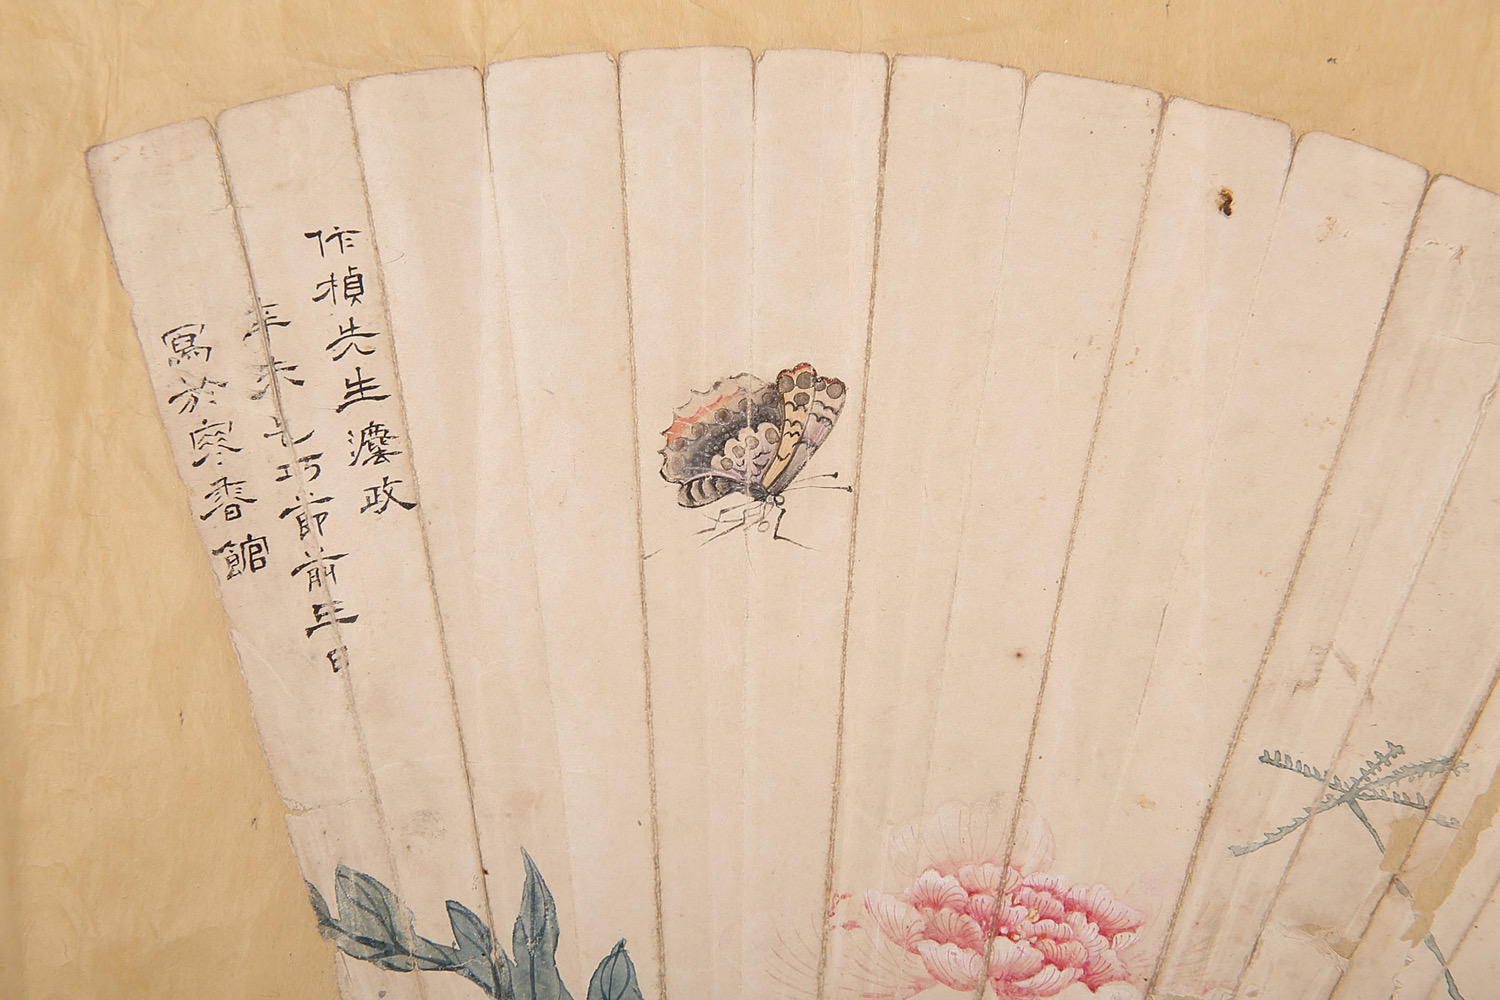 作楨先生灋政
辛未七巧節前三日
寫於寒香館